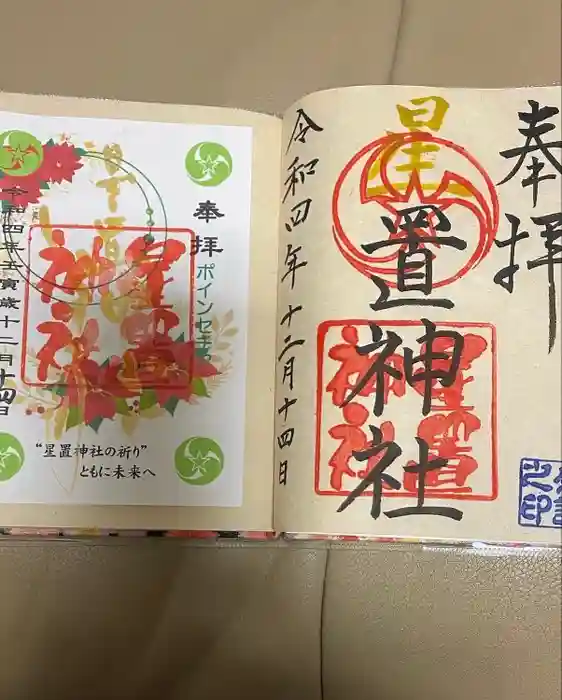 奉拝
星置神社
星置神社
令和四年十二月十四日
之印
奉拝
ポインセチ
星置神社
令和四年壬寅歳十二月十四日
"星置神社の祈り"
ともに未来へ